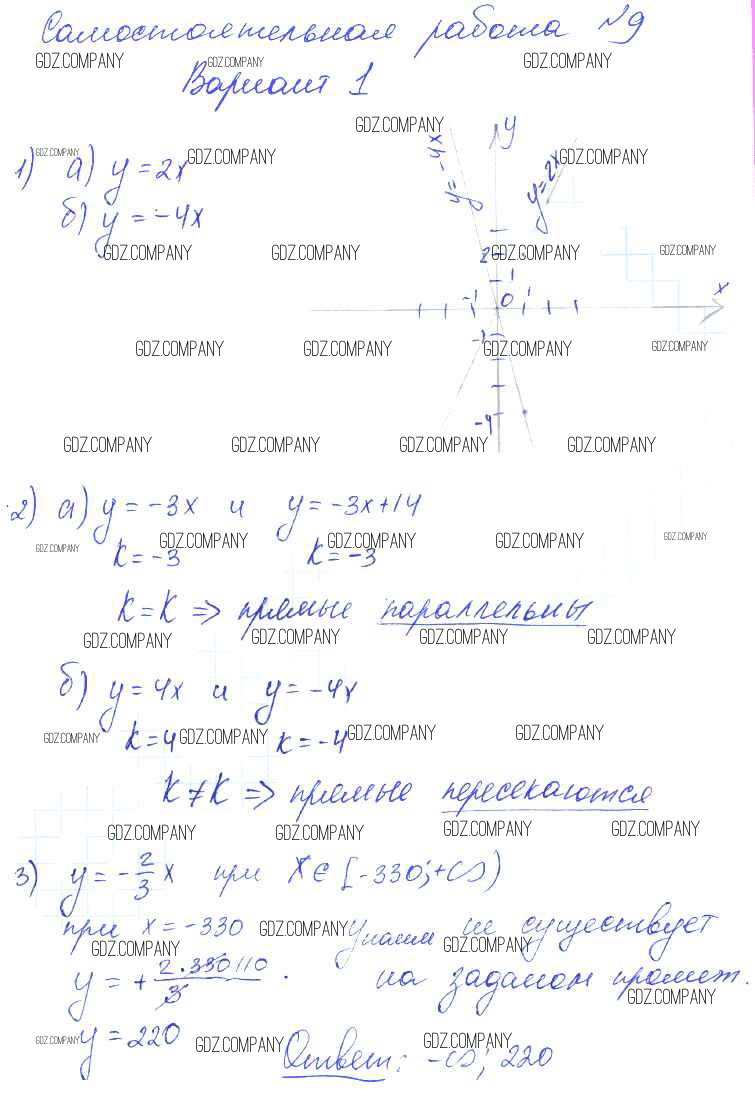 Самостоятельная работа №9
GDZ.COMPANY GDZ.COMPANY GDZ.COMPANY
Вариант 1
GDZ.COMPANY
1) а) y = 2x
GDZ.COMPANY GDZ.COMPANY GDZ.COMPANY
б) y = -4x
y = -4x y y = 2x
GDZ.COMPANY GDZ.COMPANY GDZ.COMPANY GDZ.COMPANY
2 1 -1 0 1 x
-1
GDZ.COMPANY GDZ.COMPANY GDZ.COMPANY GDZ.COMPANY
-4
GDZ.COMPANY GDZ.COMPANY GDZ.COMPANY GDZ.COMPANY
2) а) y = -3x и y = -3x+14
GDZ.COMPANY GDZ.COMPANY GDZ.COMPANY GDZ.COMPANY GDZ.COMPANY
k = -3 k = -3
k = k => прямые параллельны
GDZ.COMPANY GDZ.COMPANY GDZ.COMPANY GDZ.COMPANY
б) y = 4x и y = -4x
GDZ.COMPANY GDZ.COMPANY GDZ.COMPANY GDZ.COMPANY
k = 4 k = -4
k ≠ k => прямые пересекаются
GDZ.COMPANY GDZ.COMPANY GDZ.COMPANY GDZ.COMPANY
3) y = -2/3 x при x ∈ [-330; +∞)
при x = -330 GDZ.COMPANY Унаим не существует
GDZ.COMPANY GDZ.COMPANY
y = + 2·330 110 / 3 . на заданом промеж.
GDZ.COMPANY
GDZ.COMPANY y = 220 GDZ.COMPANY GDZ.COMPANY
Ответ: -∞; 220